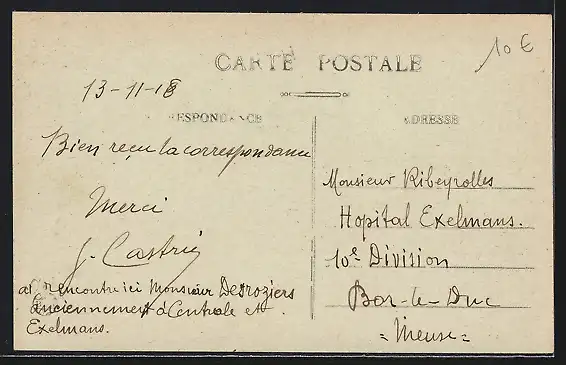 10 €
CARTE POSTALE
13-11-18
RESPONDANCE
ADRESSE
Bien reçu la correspondance
Merci
J. Castrie
ai rencontré ici Monsieur Desroziers
Anciennement à Centrale et
Exelmans.
Monsieur Ribeyrolles
Hopital Exelmans.
10e Division
Bar-le-Duc
= Meuse =